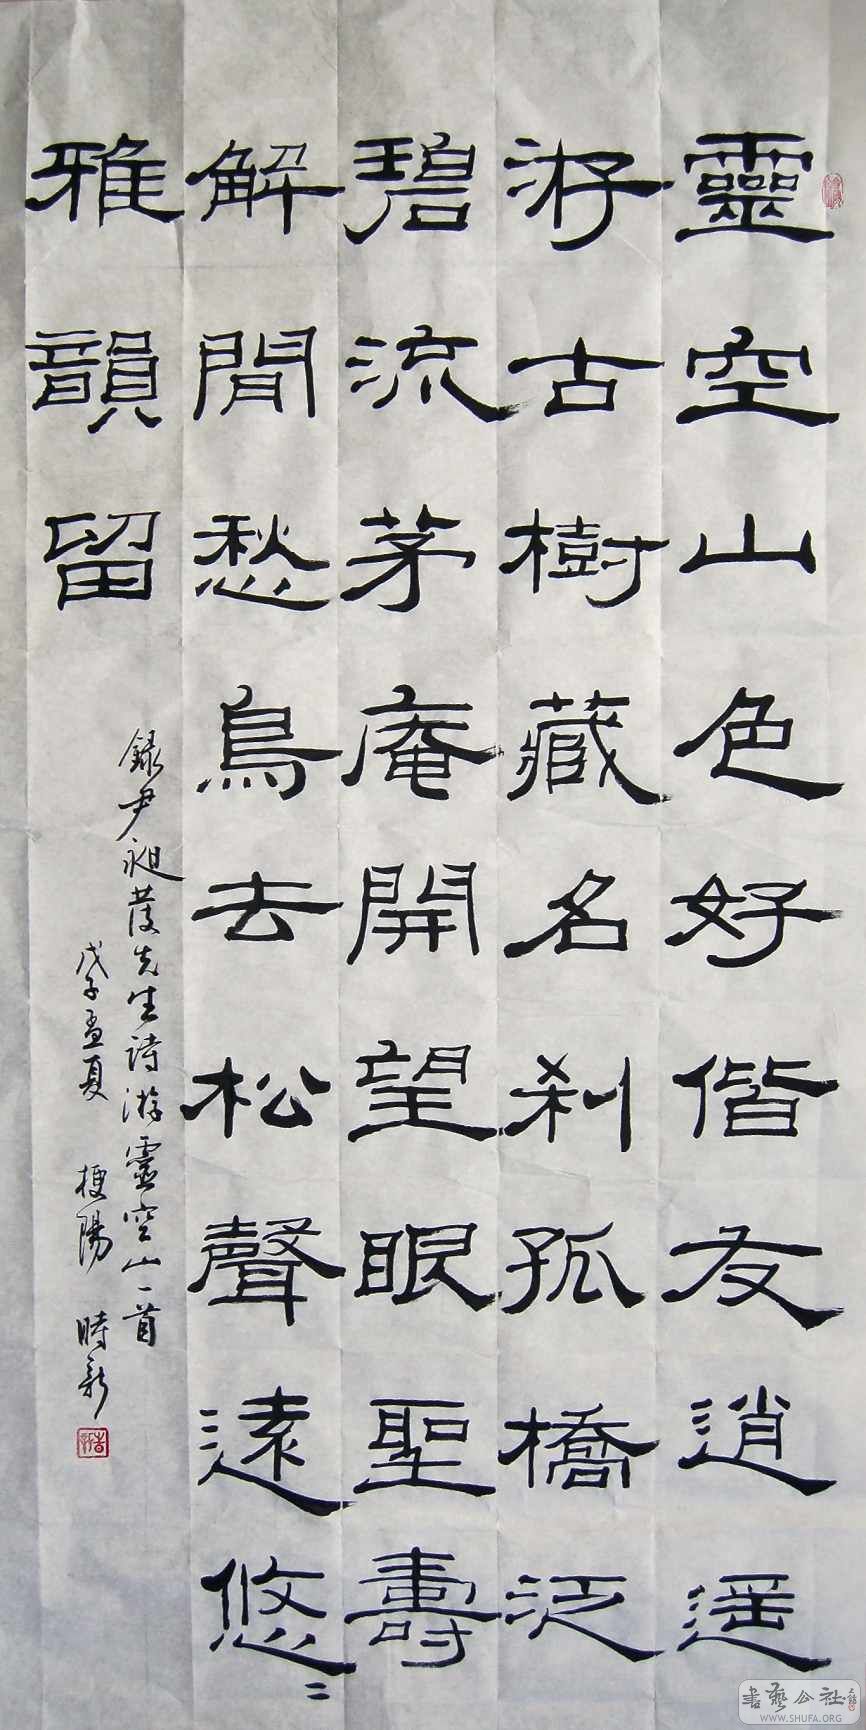 靈空山色好偕友逍遥
游古樹藏名刹孤橋泛
碧流茅庵開望眼聖壽
解閒愁鳥去松聲遠悠〻
雅韻留
録尹昶發先生詩游靈空山一首
戊子孟夏 梗陽 時新
書藝公社
WWW.SHUFA.ORG